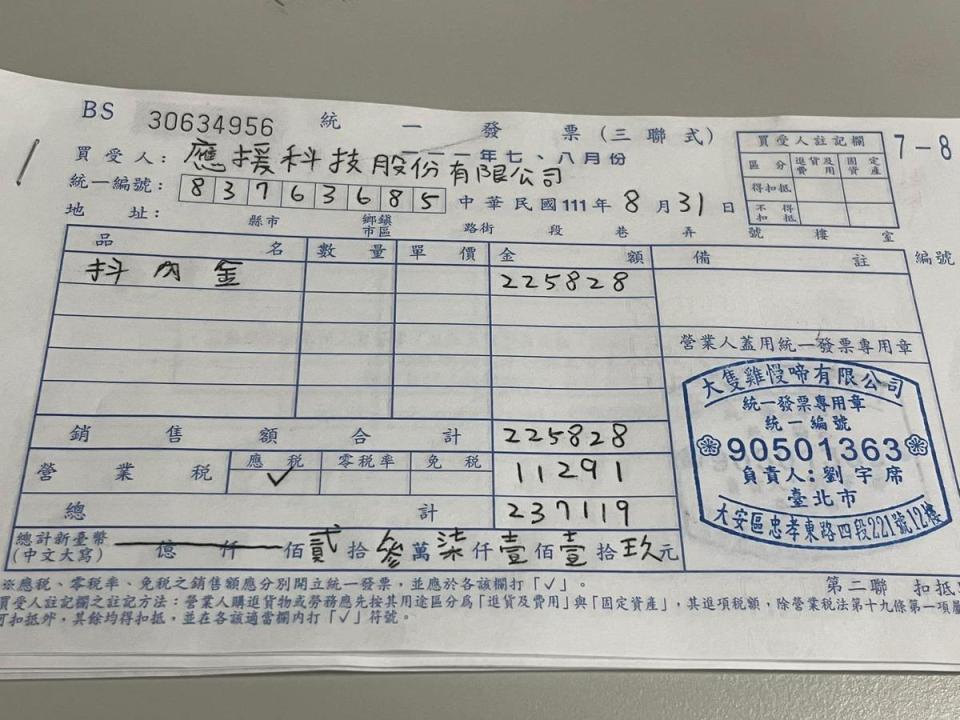 BS 30634956 統一發票(三聯式)
一一一年七、八月份
7-8
買受人註記欄
區分 進貨及費用 固定資產
得扣抵
不得扣抵
買受人: 應援科技股份有限公司
統一編號: 83763685 中華民國111年8月31日
地址: 縣市 鄉鎮市區 路街 段 巷 弄 號 樓 室
品名 數量 單價 金額 備註 編號
抖內金 225828
營業人蓋用統一發票專用章
大隻雞慢啼有限公司
統一發票專用章
統一編號
90501363
負責人:劉宇席
臺北市
大安區忠孝東路四段221號12樓
銷售額合計 225828
營業稅 應稅 ✓ 零稅率 免稅 11291
總計 237119
總計新臺幣(中文大寫) 億 仟 佰貳拾參萬柒仟壹佰壹拾玖元
※應稅、零稅率、免稅之銷售額應分別開立統一發票,並應於各該欄打「✓」。
第二聯 扣抵
買受人註記欄之註記方法:營業人購進貨物或勞務應先按其用途區分為「進貨及費用」與「固定資產」,其進項稅額,除營業稅法第十九條第一項屬
可扣抵外,其餘均得扣抵,並在各該適當欄內打「✓」符號。